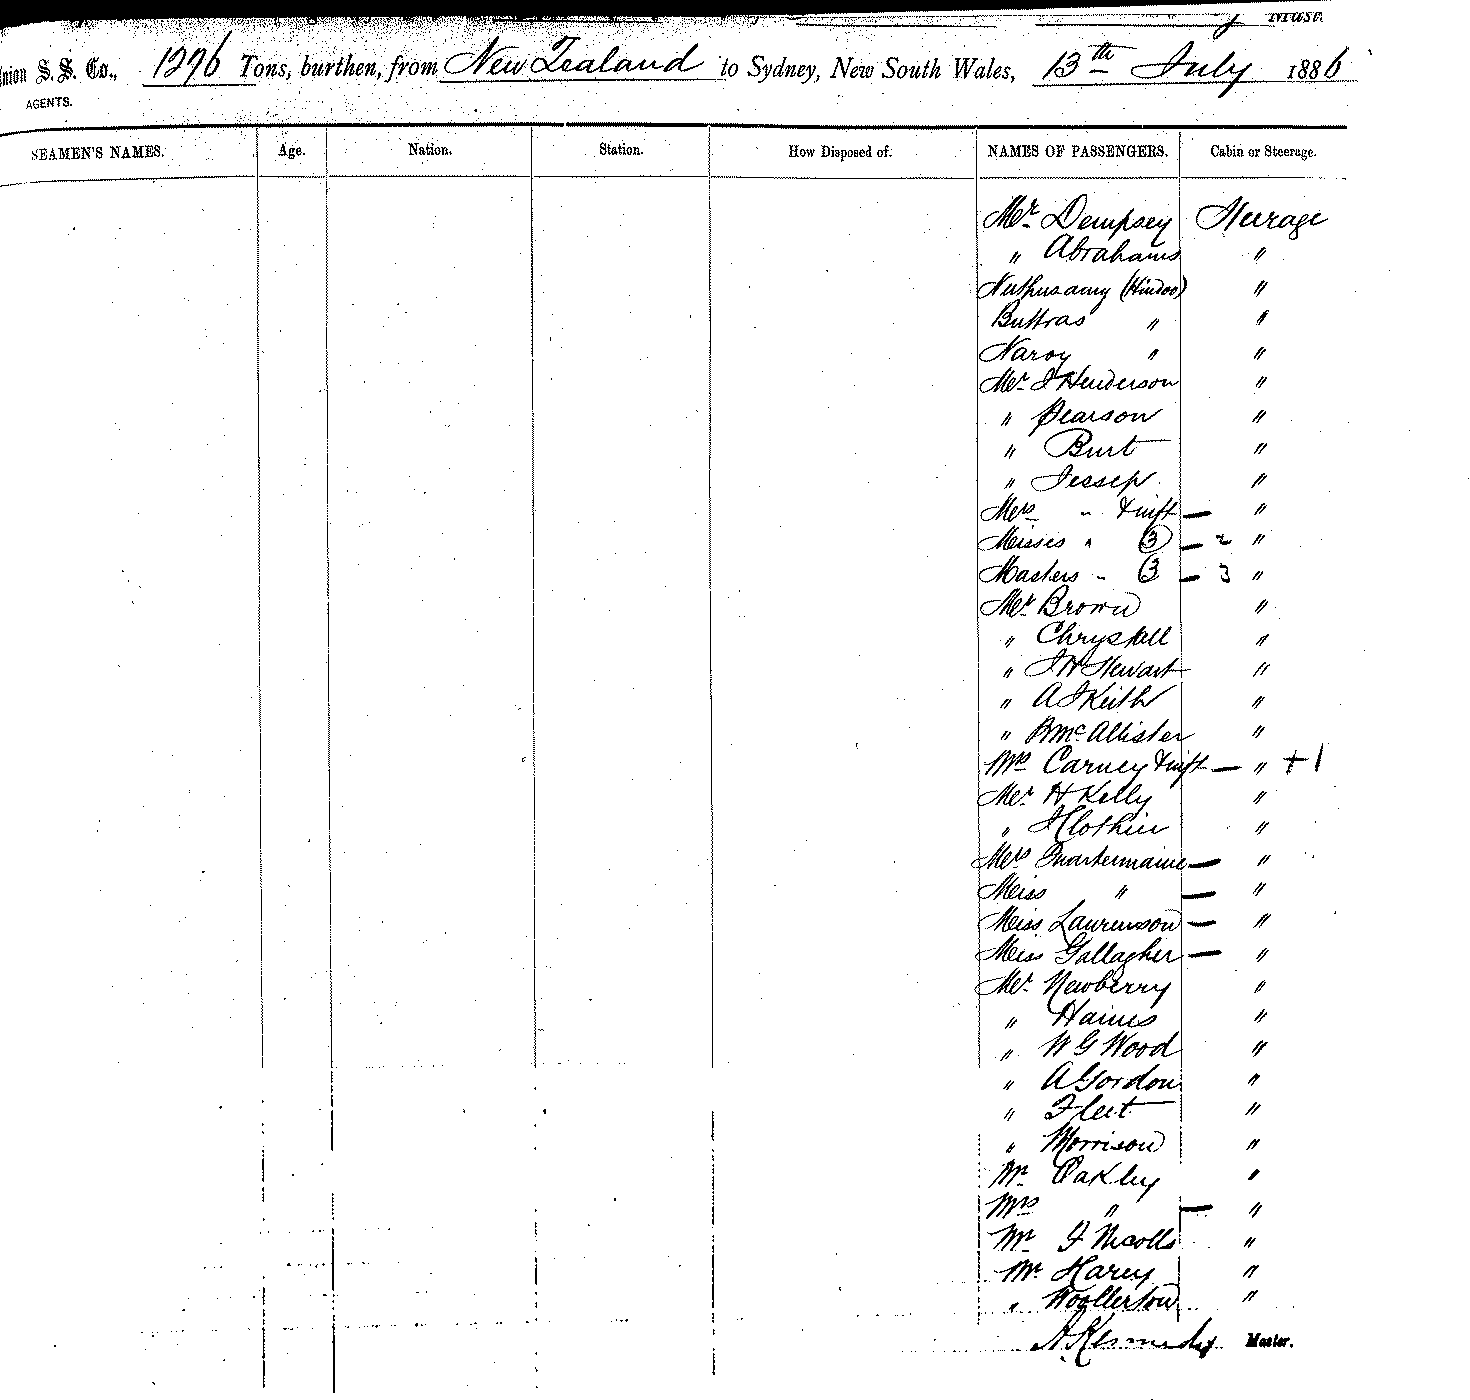 Union S. S. Co., 1296 Tons, burthen, from New Zealand to Sydney, New South Wales, 13th July 1886
AGENTS.
SEAMEN'S NAMES. Age. Nation. Station. How Disposed of. NAMES OF PASSENGERS. Cabin or Steerage.
Mr. Dempsey Steerage
" Abrahams "
Nuthusamy (Hindoo) "
Buttras " "
Naroy " "
Mr. J Henderson "
" Pearson "
" Burt "
" Jessep "
Mrs " & inft — "
Misses " 3 — 2 "
Masters " 3 — 3 "
Mr. Brown "
" Chrystall "
" J W Stewart "
" A J Keith "
" McAllister "
Mrs Carney & inft — " + 1
Mr. H Kelly "
" "
Mrs Quartermaine — "
Miss " — "
Miss Laurenson — "
Miss Gallagher — "
Mr. Newberry "
" Haines "
" W G Wood "
" A Gordon "
" Fleet "
" Morrison "
Mr. Oakley "
Mrs " — "
Mr. J Nicolls "
Mr. Harey "
" Woollerton "
A Kennedy Master.